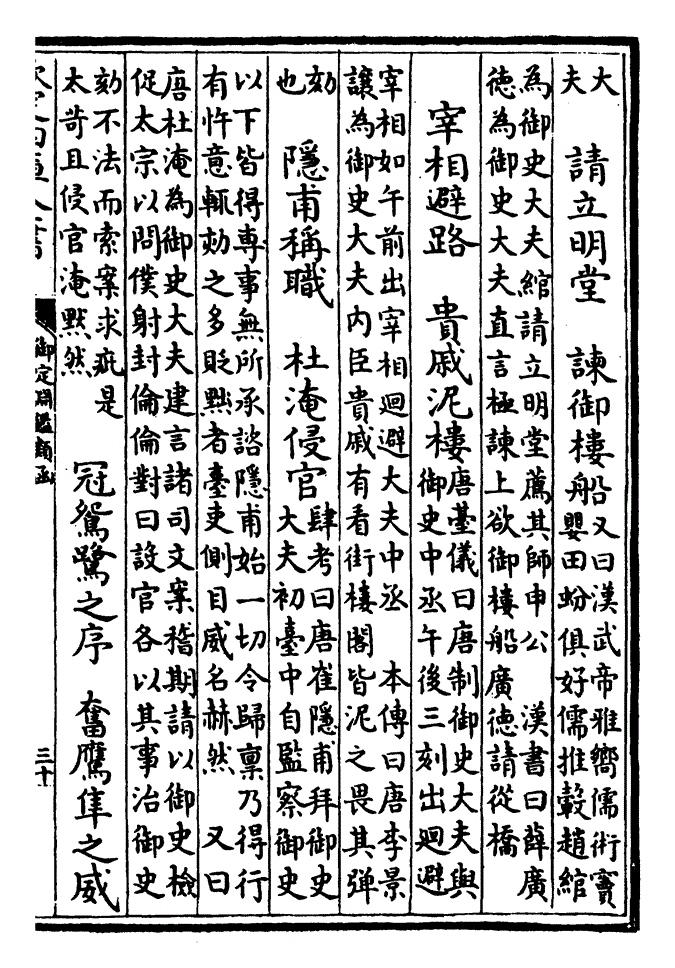 大
夫
請立明堂　諫御樓船
又曰漢武帝雅嚮儒術竇
嬰田蚡俱好儒推轂趙綰
為御史大夫綰請立明堂薦其師申公　漢書曰薛廣
徳為御史大夫直言極諫上欲御樓船廣徳請從橋
宰相避路　貴戚泥樓
唐臺儀曰唐制御史大夫與
御史中丞午後三刻出迴避
宰相如午前出宰相迴避大夫中丞　本傳曰唐李景
讓為御史大夫内臣貴戚有看街樓閣皆泥之畏其彈
劾
也
隱甫稱職　杜淹侵官
肆考曰唐崔隱甫拜御史
大夫初臺中自監察御史
以下皆得専事無所承諮隱甫始一切令歸禀乃得行
有忤意輒劾之多貶黜者臺吏側目威名赫然　又曰
唐杜淹為御史大夫建言諸司文案稽期請以御史檢
促太宗以問僕射封倫倫對曰設官各以其事治御史
劾不法而索案求疵是
太苛且侵官淹黙然
冠鴛鷺之序　奮鷹隼之威
御定淵鑑類函
三十